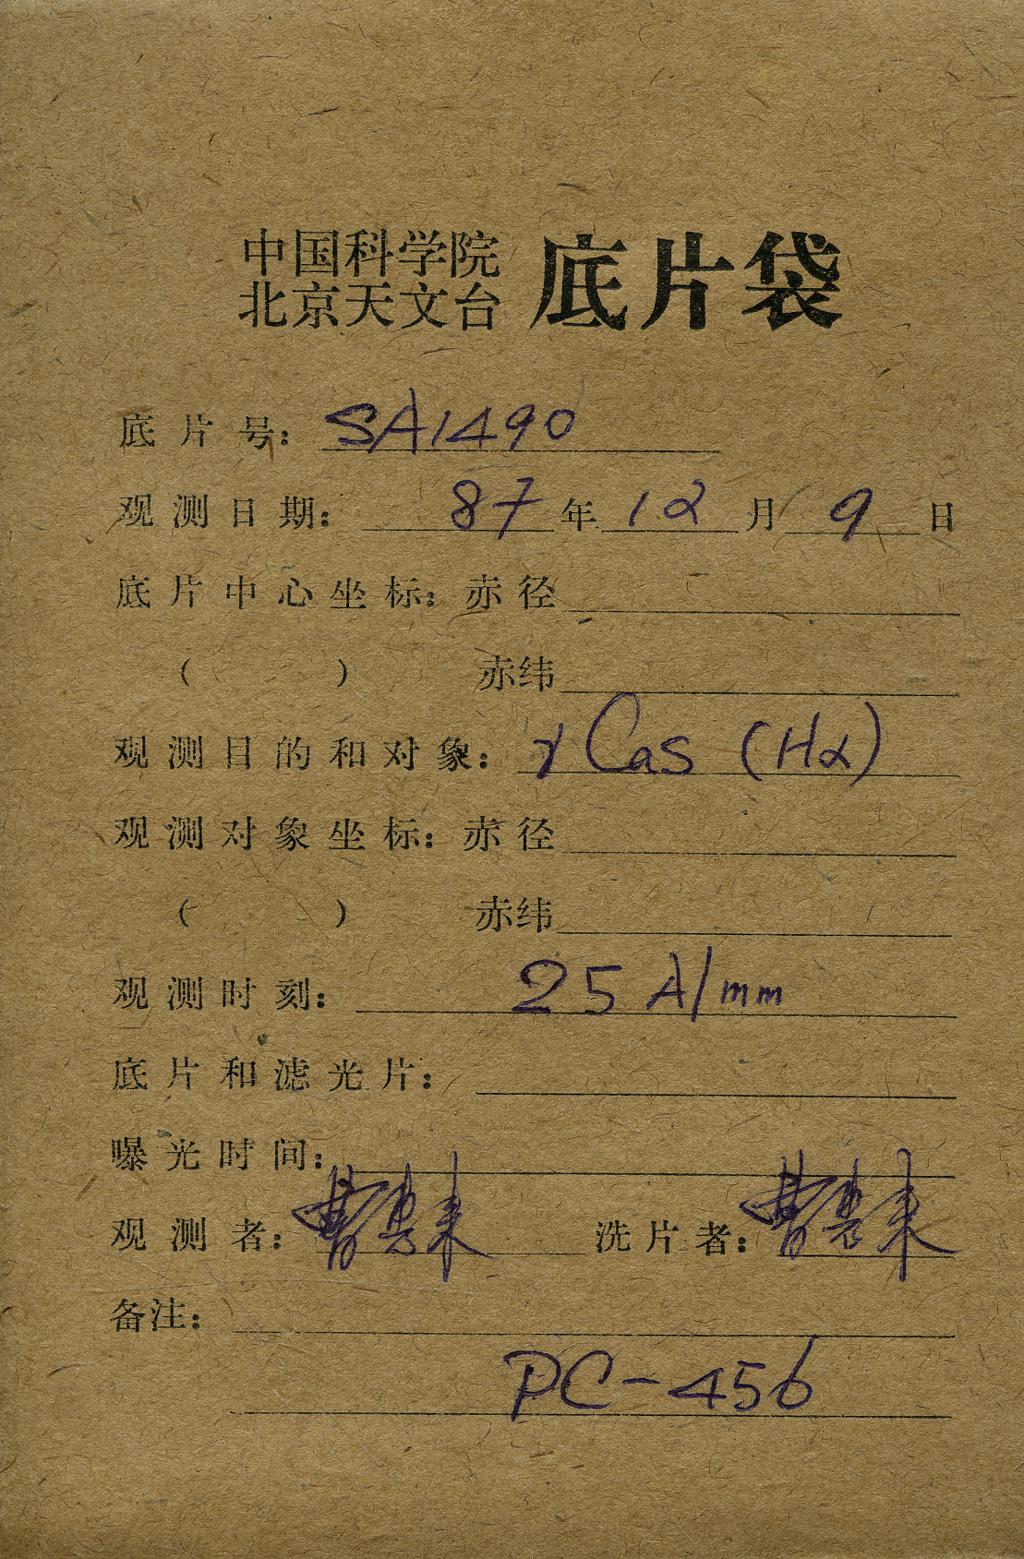 中国科学院
北京天文台 底片袋
底片号: SA1490
观测日期: 87年12月9日
底片中心坐标: 赤径
( ) 赤纬
观测目的和对象: γ Cas (Hα)
观测对象坐标: 赤径
( ) 赤纬
观测时刻: 25 A/mm
底片和滤光片:
曝光时间:
观测者: 曹惠来 洗片者: 曹惠来
备注:
PC-456